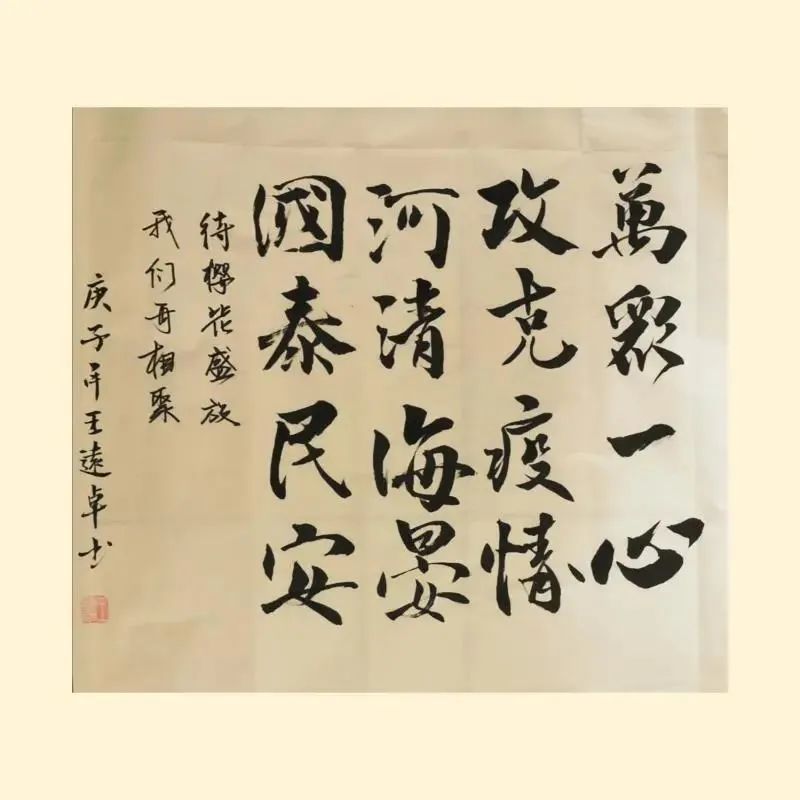 萬眾一心
攻克疫情
河清海晏
國泰民安
待櫻花盛放
我们再相聚
庚子年王遠卓书